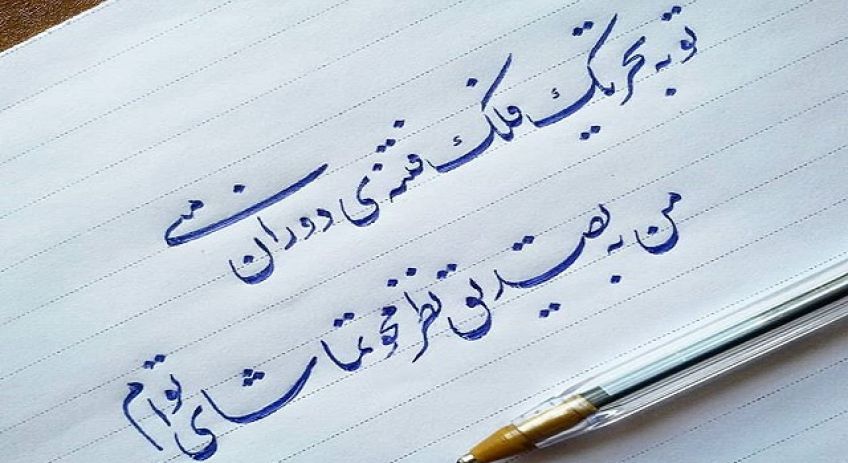 تو به تحریک فلک فتنه‌ی دوران منی
من به تصدیق نظر محو تماشای توام